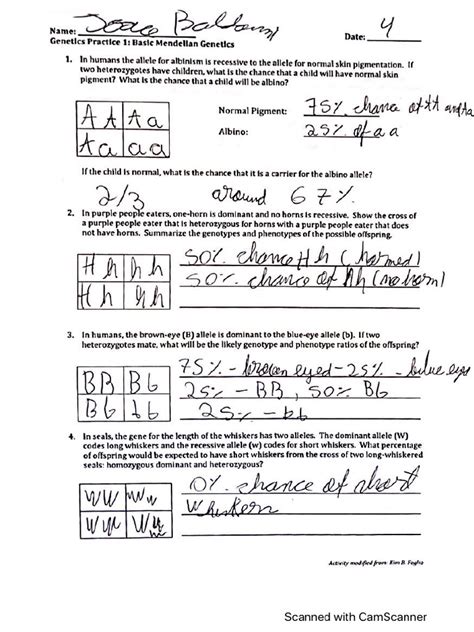 Name: Isaac
Date: 4
Genetics Practice 1: Basic Mendelian Genetics
1. In humans the allele for albinism is recessive to the allele for normal skin pigmentation. If
two heterozygotes have children, what is the chance that a child will have normal skin
pigment? What is the chance that a child will be albino?
AA Aa
Aa aa
Normal Pigment: 75% chance of AA and Aa
Albino: 25% of aa
If the child is normal, what is the chance that it is a carrier for the albino allele?
2/3 around 67%
2. In purple people eaters, one-horn is dominant and no horns is recessive. Show the cross of
a purple people eater that is heterozygous for horns with a purple people eater that does
not have horns. Summarize the genotypes and phenotypes of the possible offspring.
Hh hh
Hh hh
50% chance Hh (horned)
50% chance of hh (no horn)
3. In humans, the brown-eye (B) allele is dominant to the blue-eye allele (b). If two
heterozygotes mate, what will be the likely genotype and phenotype ratios of the offspring?
BB Bb
Bb bb
75% - brown eyed - 25% - blue eye
25% - BB, 50% Bb
25% - bb
4. In seals, the gene for the length of the whiskers has two alleles. The dominant allele (W)
codes long whiskers and the recessive allele (w) codes for short whiskers. What percentage
of offspring would be expected to have short whiskers from the cross of two long-whiskered
seals: homozygous dominant and heterozygous?
WW Ww
0% chance of short
Whiskers
Activity modified from: Kim B. Foglia
Scanned with CamScanner